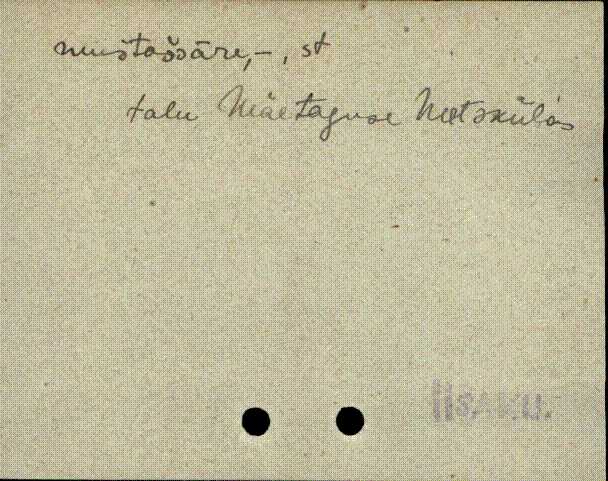 mustaššāre, -, st
talu Mäetaguse Metskülas
Iisaku.